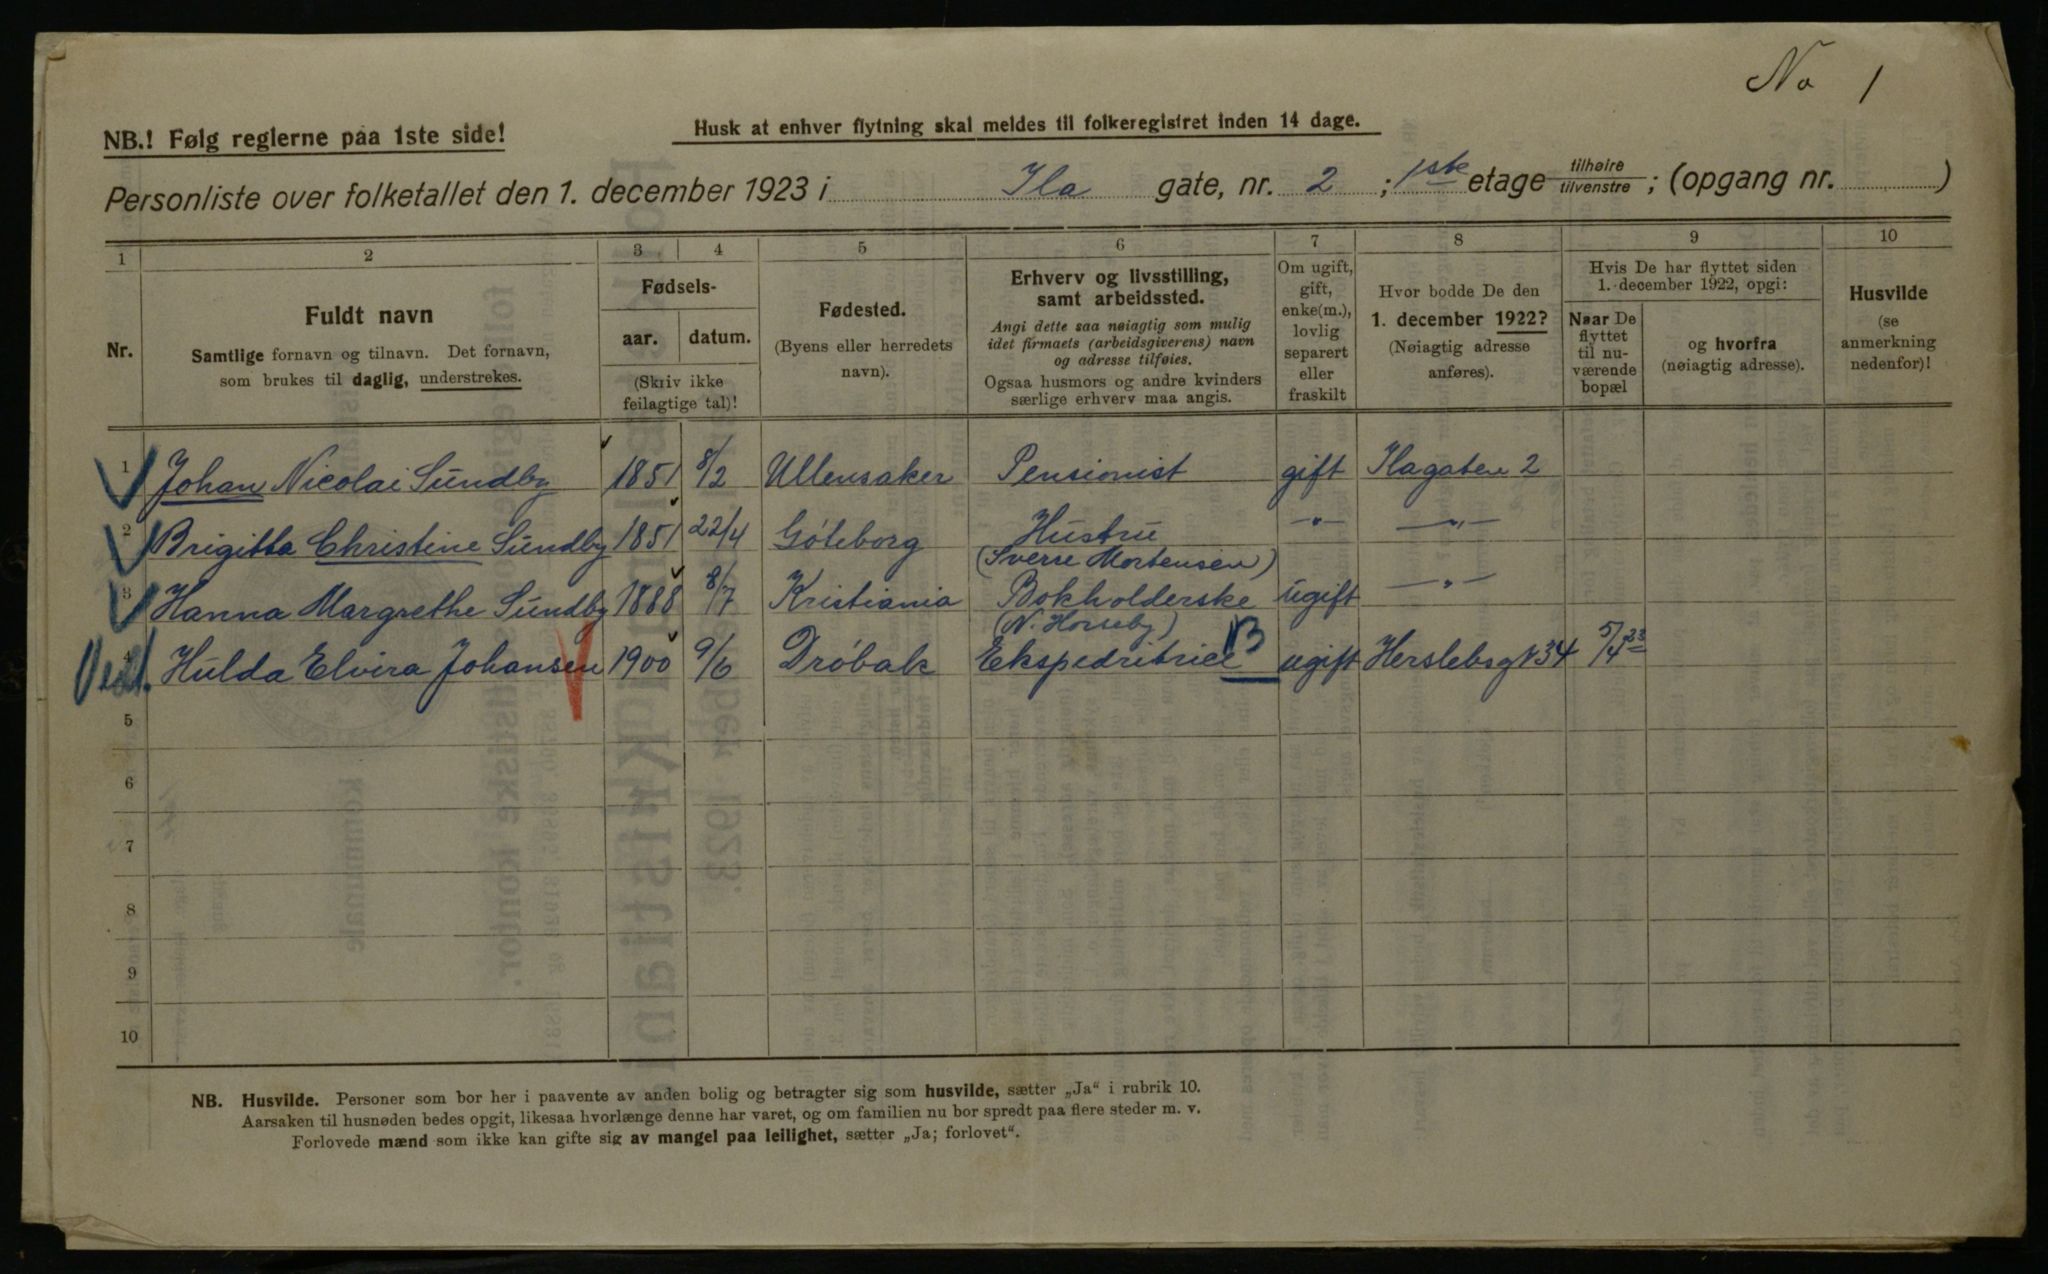 No 1
NB.! Følg reglerne paa 1ste side!
Husk at enhver flytning skal meldes til folkeregistret inden 14 dage.
Personliste over folketallet den 1. december 1923 i Ila gate, nr. 2 ; 1ste etage tilhøire tilvenstre ; (opgang nr. )
1 2 3 4 5 6 7 8 9 10
Nr.
Fuldt navn
Samtlige fornavn og tilnavn. Det fornavn,
som brukes til daglig, understrekes.
Fødsels-
aar. datum.
(Skriv ikke
feilagtige tal)!
Fødested.
(Byens eller herredets
navn).
Erhverv og livsstilling,
samt arbeidssted.
Angi dette saa nøiagtig som mulig
idet firmaets (arbeidsgiverens) navn
og adresse tilføies.
Ogsaa husmors og andre kvinders
særlige erhverv maa angis.
Om ugift,
gift,
enke(m.),
lovlig
separert
eller
fraskilt
Hvor bodde De den
1. december 1922?
(Nøiagtig adresse
anføres).
Hvis De har flyttet siden
1. december 1922, opgi:
Naar De
flyttet
til nu-
værende
bopæl
og hvorfra
(nøiagtig adresse).
Husvilde
(se
anmerkning
nedenfor)!
1 Johan Nicolai Sundby 1851 8/2 Ullensaker Pensionist gift Ilagaten 2
2 Brigitta Christine Sundby 1851 22/4 Göteborg Hustru —"— —"—
(Sverre Mortensen)
3 Hanna Margrethe Sundby 1888 8/7 Kristiania Bokholderske ugift —"—
(N. Horseby)
4 Hulda Elvira Johansen 1900 9/6 Dröbak Ekspedritrice B ugift Herslebsgt 34 5/4 23
5
6
7
8
9
10
NB. Husvilde. Personer som bor her i paavente av anden bolig og betragter sig som husvilde, sætter „Ja“ i rubrik 10.
Aarsaken til husnøden bedes opgit, likesaa hvorlænge denne har varet, og om familien nu bor spredt paa flere steder m. v.
Forlovede mænd som ikke kan gifte sig av mangel paa leilighet, sætter „Ja; forlovet“.